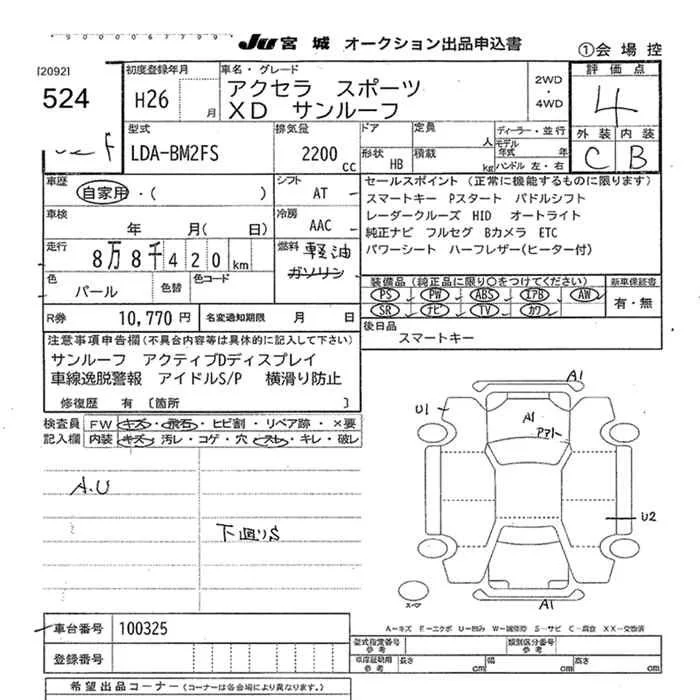 JU 宮城 オークション出品申込書
①会場控
[2092]
524
初度登録年月
H26 月
車名・グレード
アクセラ スポーツ
XD サンルーフ
2WD
・
4WD
評価点
4
外装 内装
C B
型式
LDA-BM2FS
排気量
2200 CC
ドア
定員 人
形状 HB
積載 kg
ディーラー・並行
モデル年式 年
ハンドル 左・右
車歴
自家用・( )
シフト
AT
車検
年 月( 日)
冷房
AAC
走行
8万8千420km
燃料
軽油
ガソリン
色
パール
色替
色コード
R券
10,770円
名変通知期限 月 日
セールスポイント (正常に機能するものに限ります)
スマートキー Pスタート パドルシフト
レーダークルーズ HID オートライト
純正ナビ フルセグ Bカメラ ETC
パワーシート ハーフレザー(ヒーター付)
装備品(純正品に限り○をつけてください)
新車保証書
PS PW ABS エアB AW
SR ナビ TV カワ
有・無
後日品
スマートキー
注意事項申告欄(不具合内容等は具体的に記入して下さい)
サンルーフ アクティブDディスプレイ
車線逸脱警報 アイドルS/P 横滑り防止
修復歴 有 〔箇所 〕
検査員
記入欄
FW キズ・飛石・ヒビ割・リペア跡・×要
内装 キズ・汚レ・コゲ・穴・スレ・キレ・破レ
A.U
下廻りS
A1
U1
A1
U2
A1
スペア
A−キズ E−エクボ U−凹み W−補修跡 S−サビ C−腐食 XX−交換済
車台番号
100325
登録番号
型式指定番号
参考
類別区分番号
参考
車庫証明用
参考
長さ cm
幅 cm
高さ cm
希望出品コーナー(コーナーは各会場により異なります)